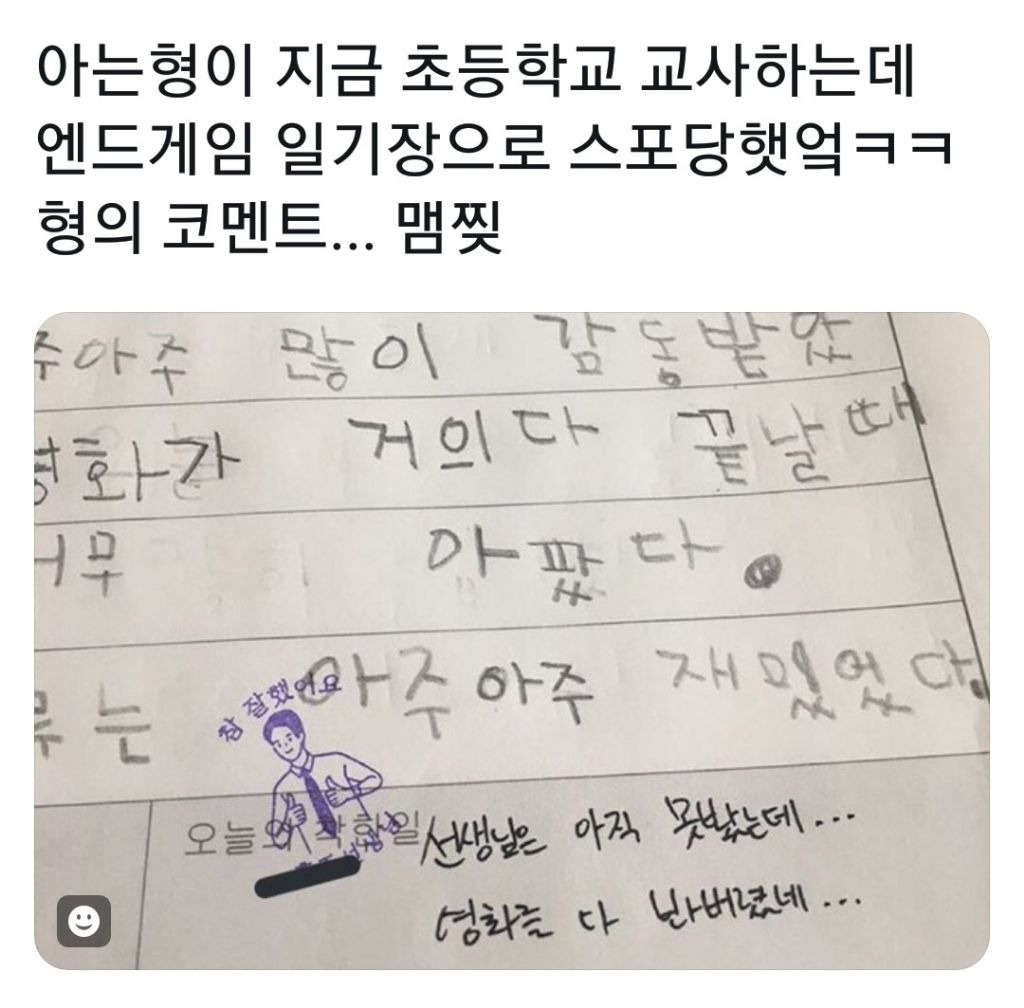 아는형이 지금 초등학교 교사하는데
엔드게임 일기장으로 스포당햇엌ㅋㅋ
형의 코멘트... 맴찢
주아주 많이 감동받았
영화가 거의다 끝날때
너무 아팠다.
아주아주 재밌었다.
참 잘했어요
오늘의 착한일
선생님은 아직 못봤는데...
영화를 다 봐버렸네...